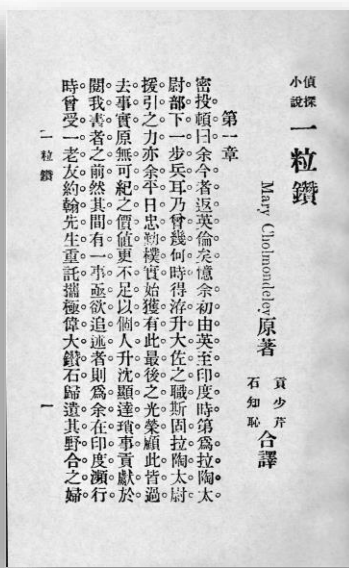 偵探小說 一粒鑽
Mary Cholmondeley 原著
貢少芹
石知恥 合譯
第一章
密投頓曰。余今者返英倫矣。憶余初由英至印度時。第爲拉陶太
尉部下一步兵耳。乃曾幾何時。得洊升大佐之職。斯固拉陶太尉
援引之力。亦余平日忠勤樸實。始獲有此最後之光榮。顧此皆過
去事實。原無可紀之價値。更不足以個人升沈顯達瑣事。貢獻於
閱我書者之前。然其間有一事亟欲追述者。則爲余在印度瀕行
時。曾受一老友約翰先生重託。攜極偉大鑽石。歸遺其野合之婦。
一粒鑽
一